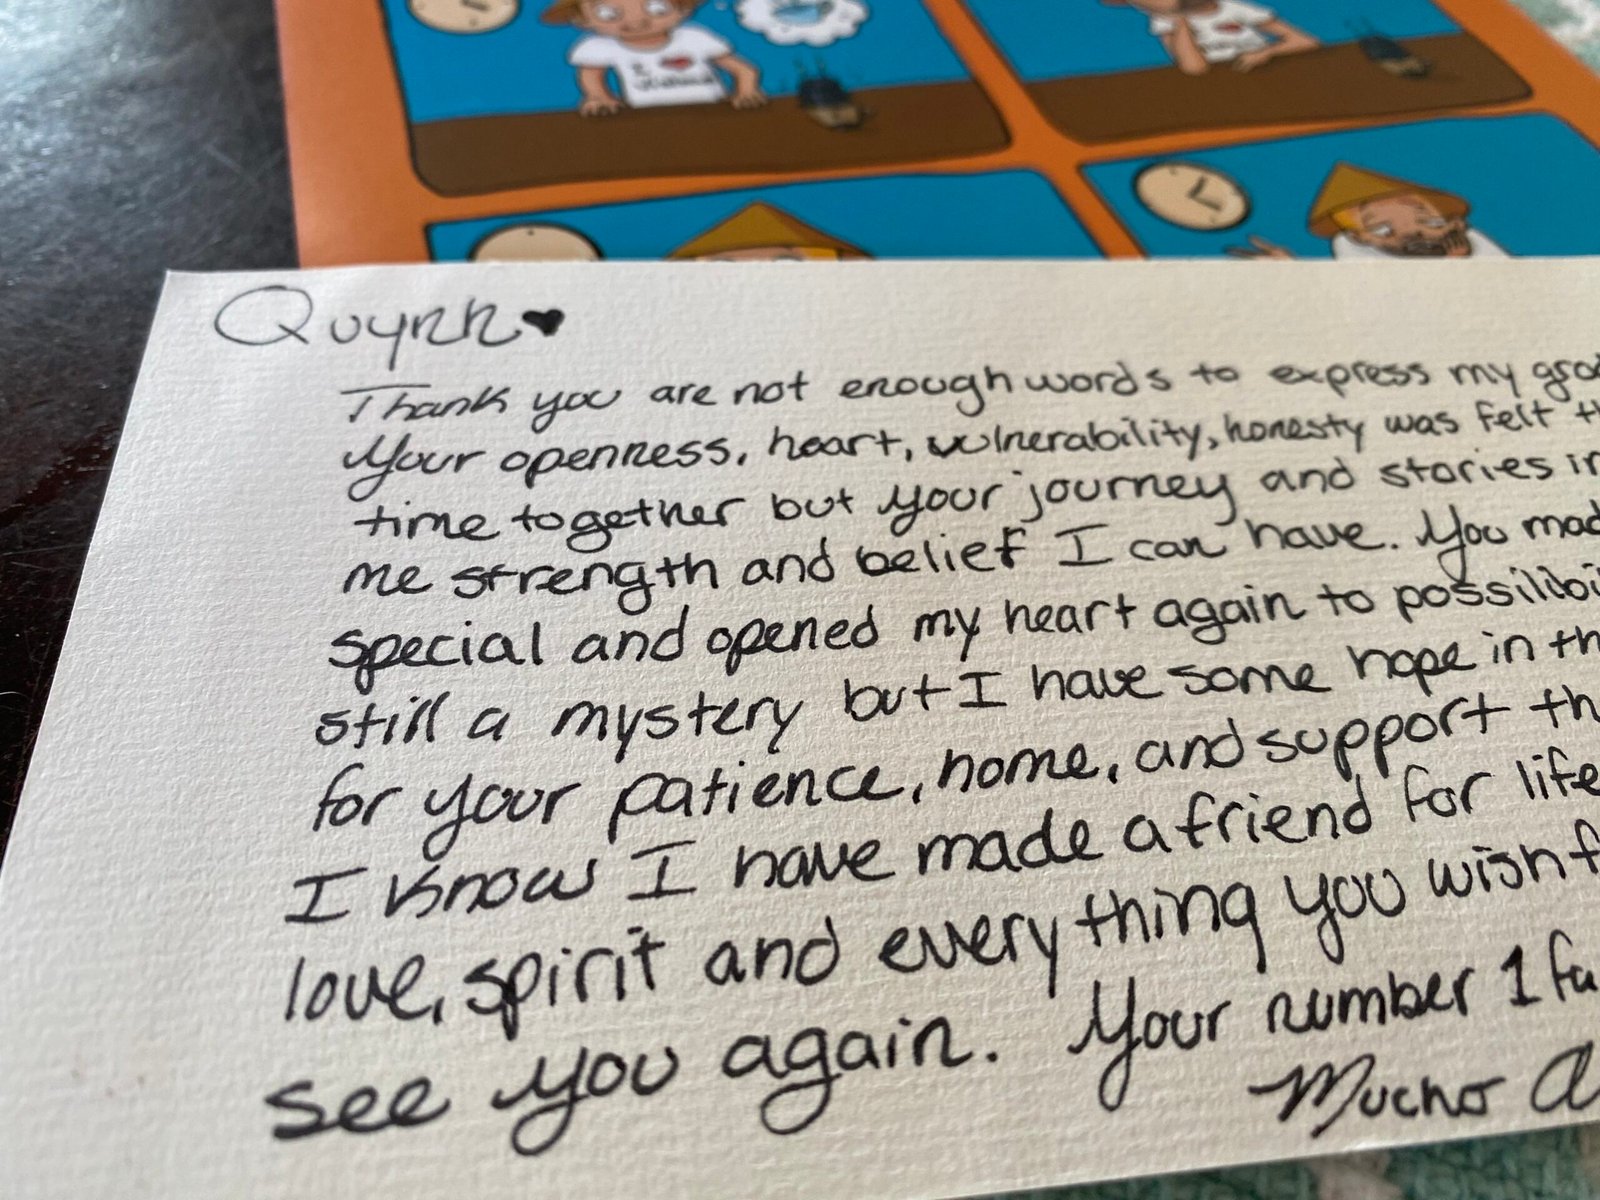 I ♥
Quynh ♥
Thank you are not enough words to express my
Your openness, heart, vulnerability, honesty was felt
time together but your journey and stories
me strength and belief I can have. You
special and opened my heart again to
still a mystery but I have some hope in
for your patience, home, and support
I know I have made a friend for life
love, spirit and everything you wish
see you again. Your number 1
Mucho